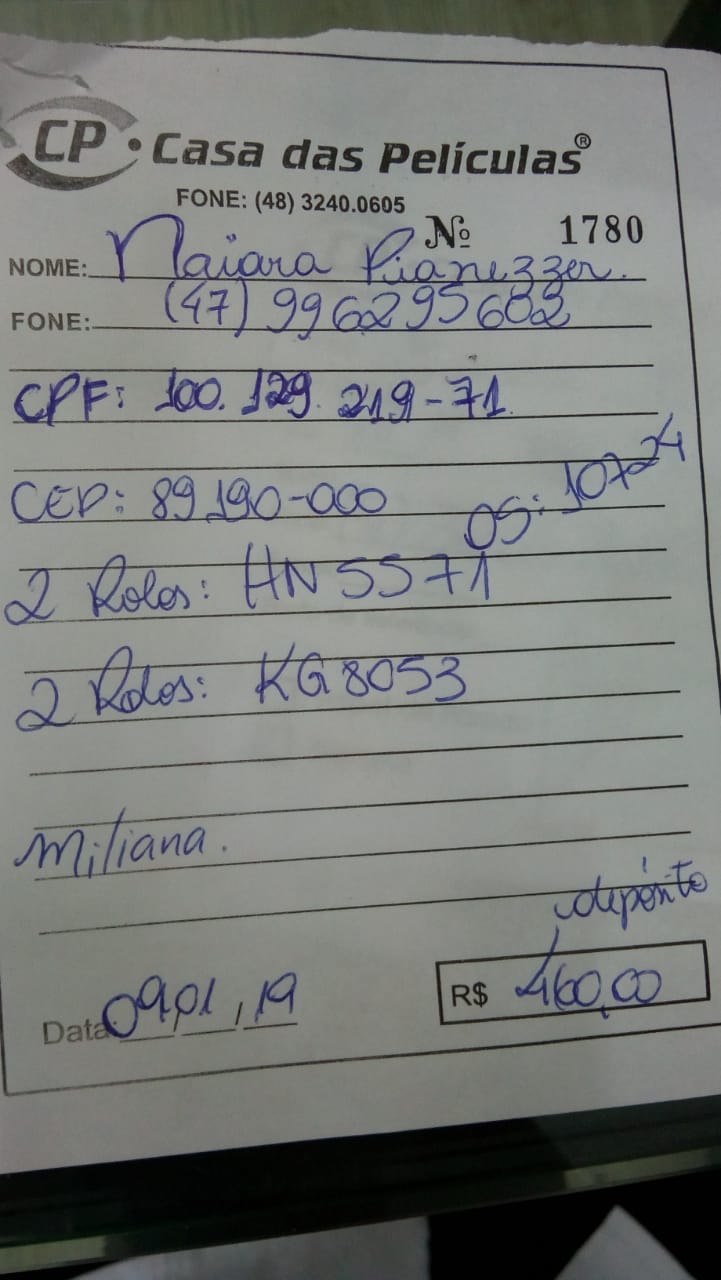 CP • Casa das Películas®
FONE: (48) 3240.0605
Nº 1780
NOME: Naiara Pianezzer.
FONE: (47) 996295682
CPF: 100.129.219-71
CEP: 89.190-000
05:10724
2 Rolos: HN5571
2 Rolos: KG8053
Miliana.
depósito
Data 09,01,19 R$ 460,00